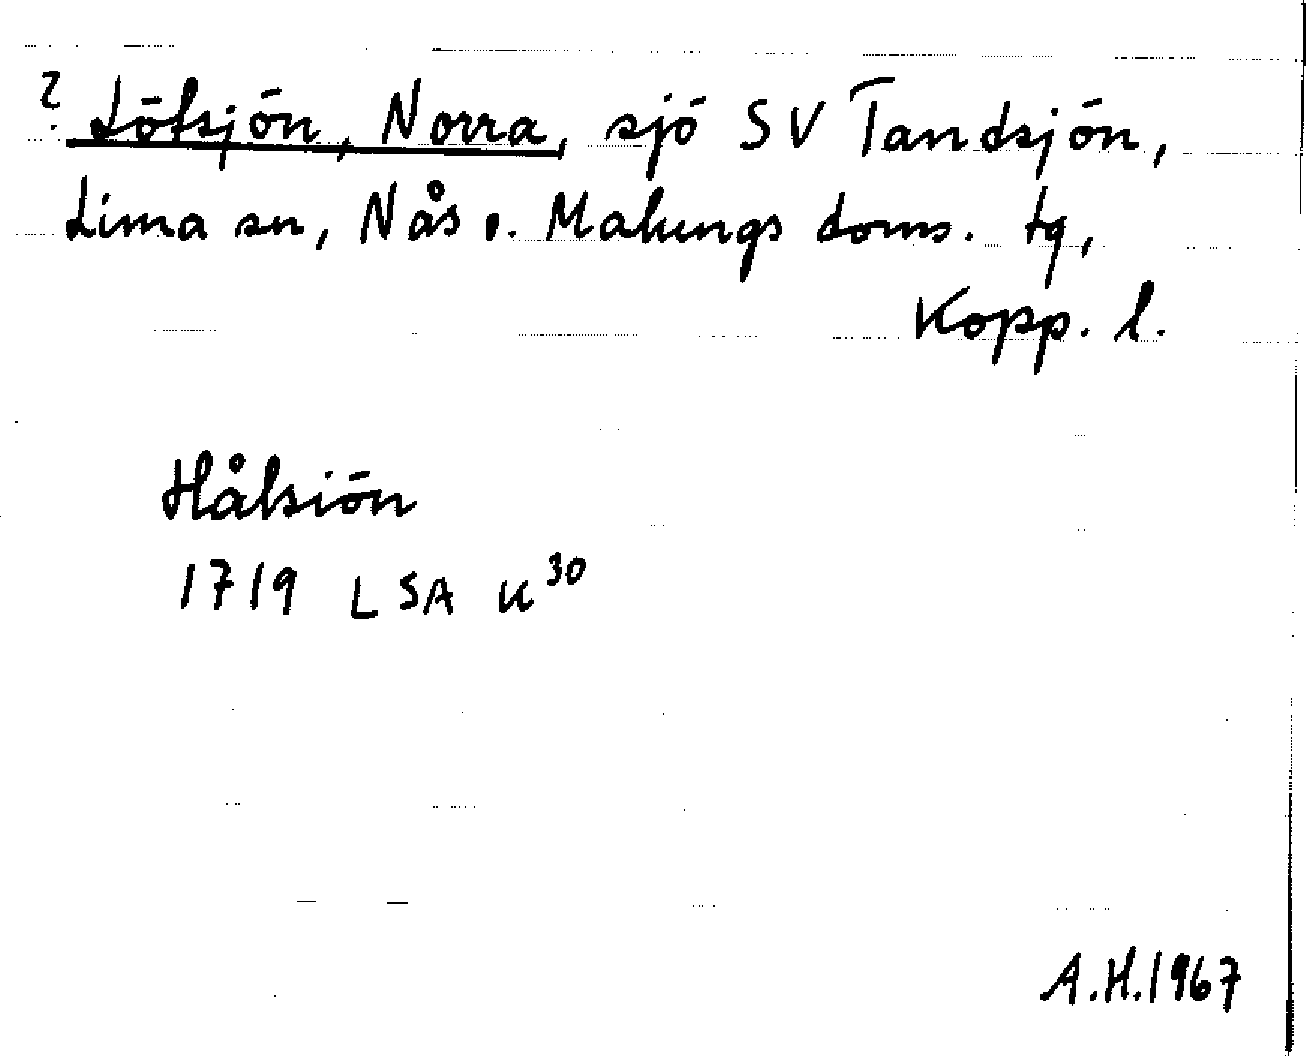 ? Lötsjön, Norra, sjö SV Tandsjön,
Lima sn, Nås o. Malungs doms. tg,
Kopp. l.
Hålsiön
1719 LSA K30
A.H.1967